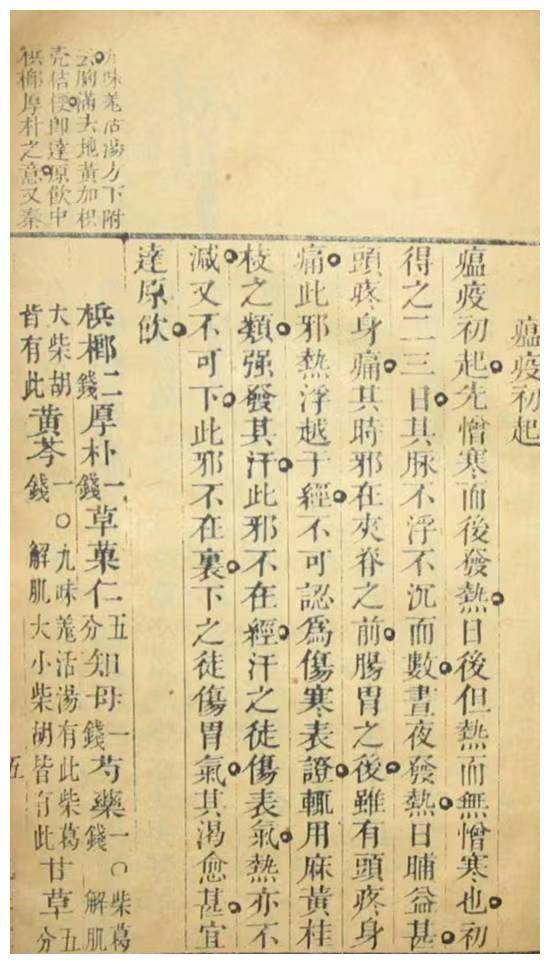 九味羗活湯方下附
云胸滿去地黃加枳
壳桔梗即達原飲中
梹榔厚朴之意又秦
瘟疫初起
瘟疫初起先憎寒而後發熱日後但熱而無憎寒也初
得之二三日其脉不浮不沉而數晝夜發熱日晡益甚
頭疼身痛其時邪在夾脊之前腸胃之後雖有頭疼身
痛此邪熱浮越于經不可認爲傷寒表證輒用麻黃桂
枝之類强發其汗此邪不在經汗之徒傷表氣熱亦不
減又不可下此邪不在裏下之徒傷胃氣其渴愈甚宜
達原飲
梹榔二錢厚朴一錢草菓仁五分知母一錢芍藥一錢○柴葛解肌
大柴胡皆有此黃芩一錢○九味羗活湯有此柴葛解肌大小柴胡皆有此甘草五分
五